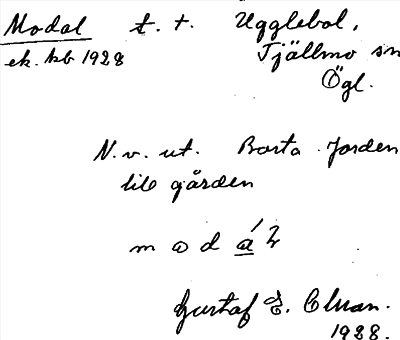 Modal t. t. Ugglebol,
ek. kb 1928 Tjällmo sn
Ögl.
N.v. ut. Borta Jorden
till gården
m o d á l
Gustaf E. Cluan.
1928.